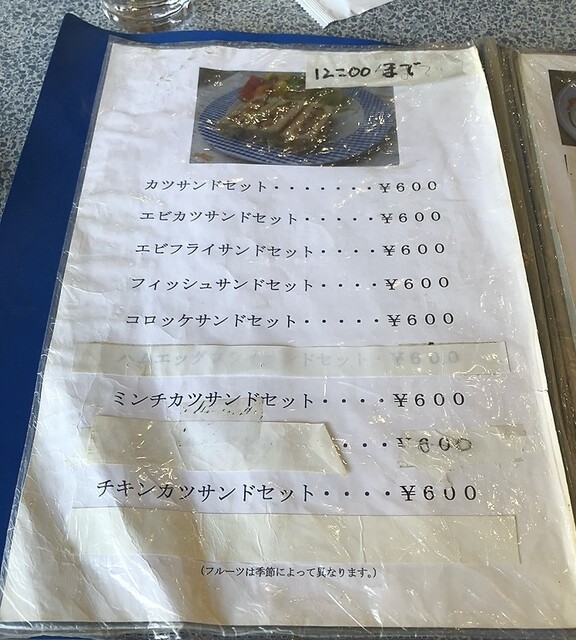 12:00まで
カツサンドセット・・・・・・・¥600
エビカツサンドセット・・・・・¥600
エビフライサンドセット・・・・¥600
フィッシュサンドセット・・・・¥600
コロッケサンドセット・・・・・¥600
ハムエッグ ンドセット・¥600
ミンチカツサンドセット・・・・¥600
・・・¥600
チキンカツサンドセット・・・・¥600
(フルーツは季節によって異なります。)